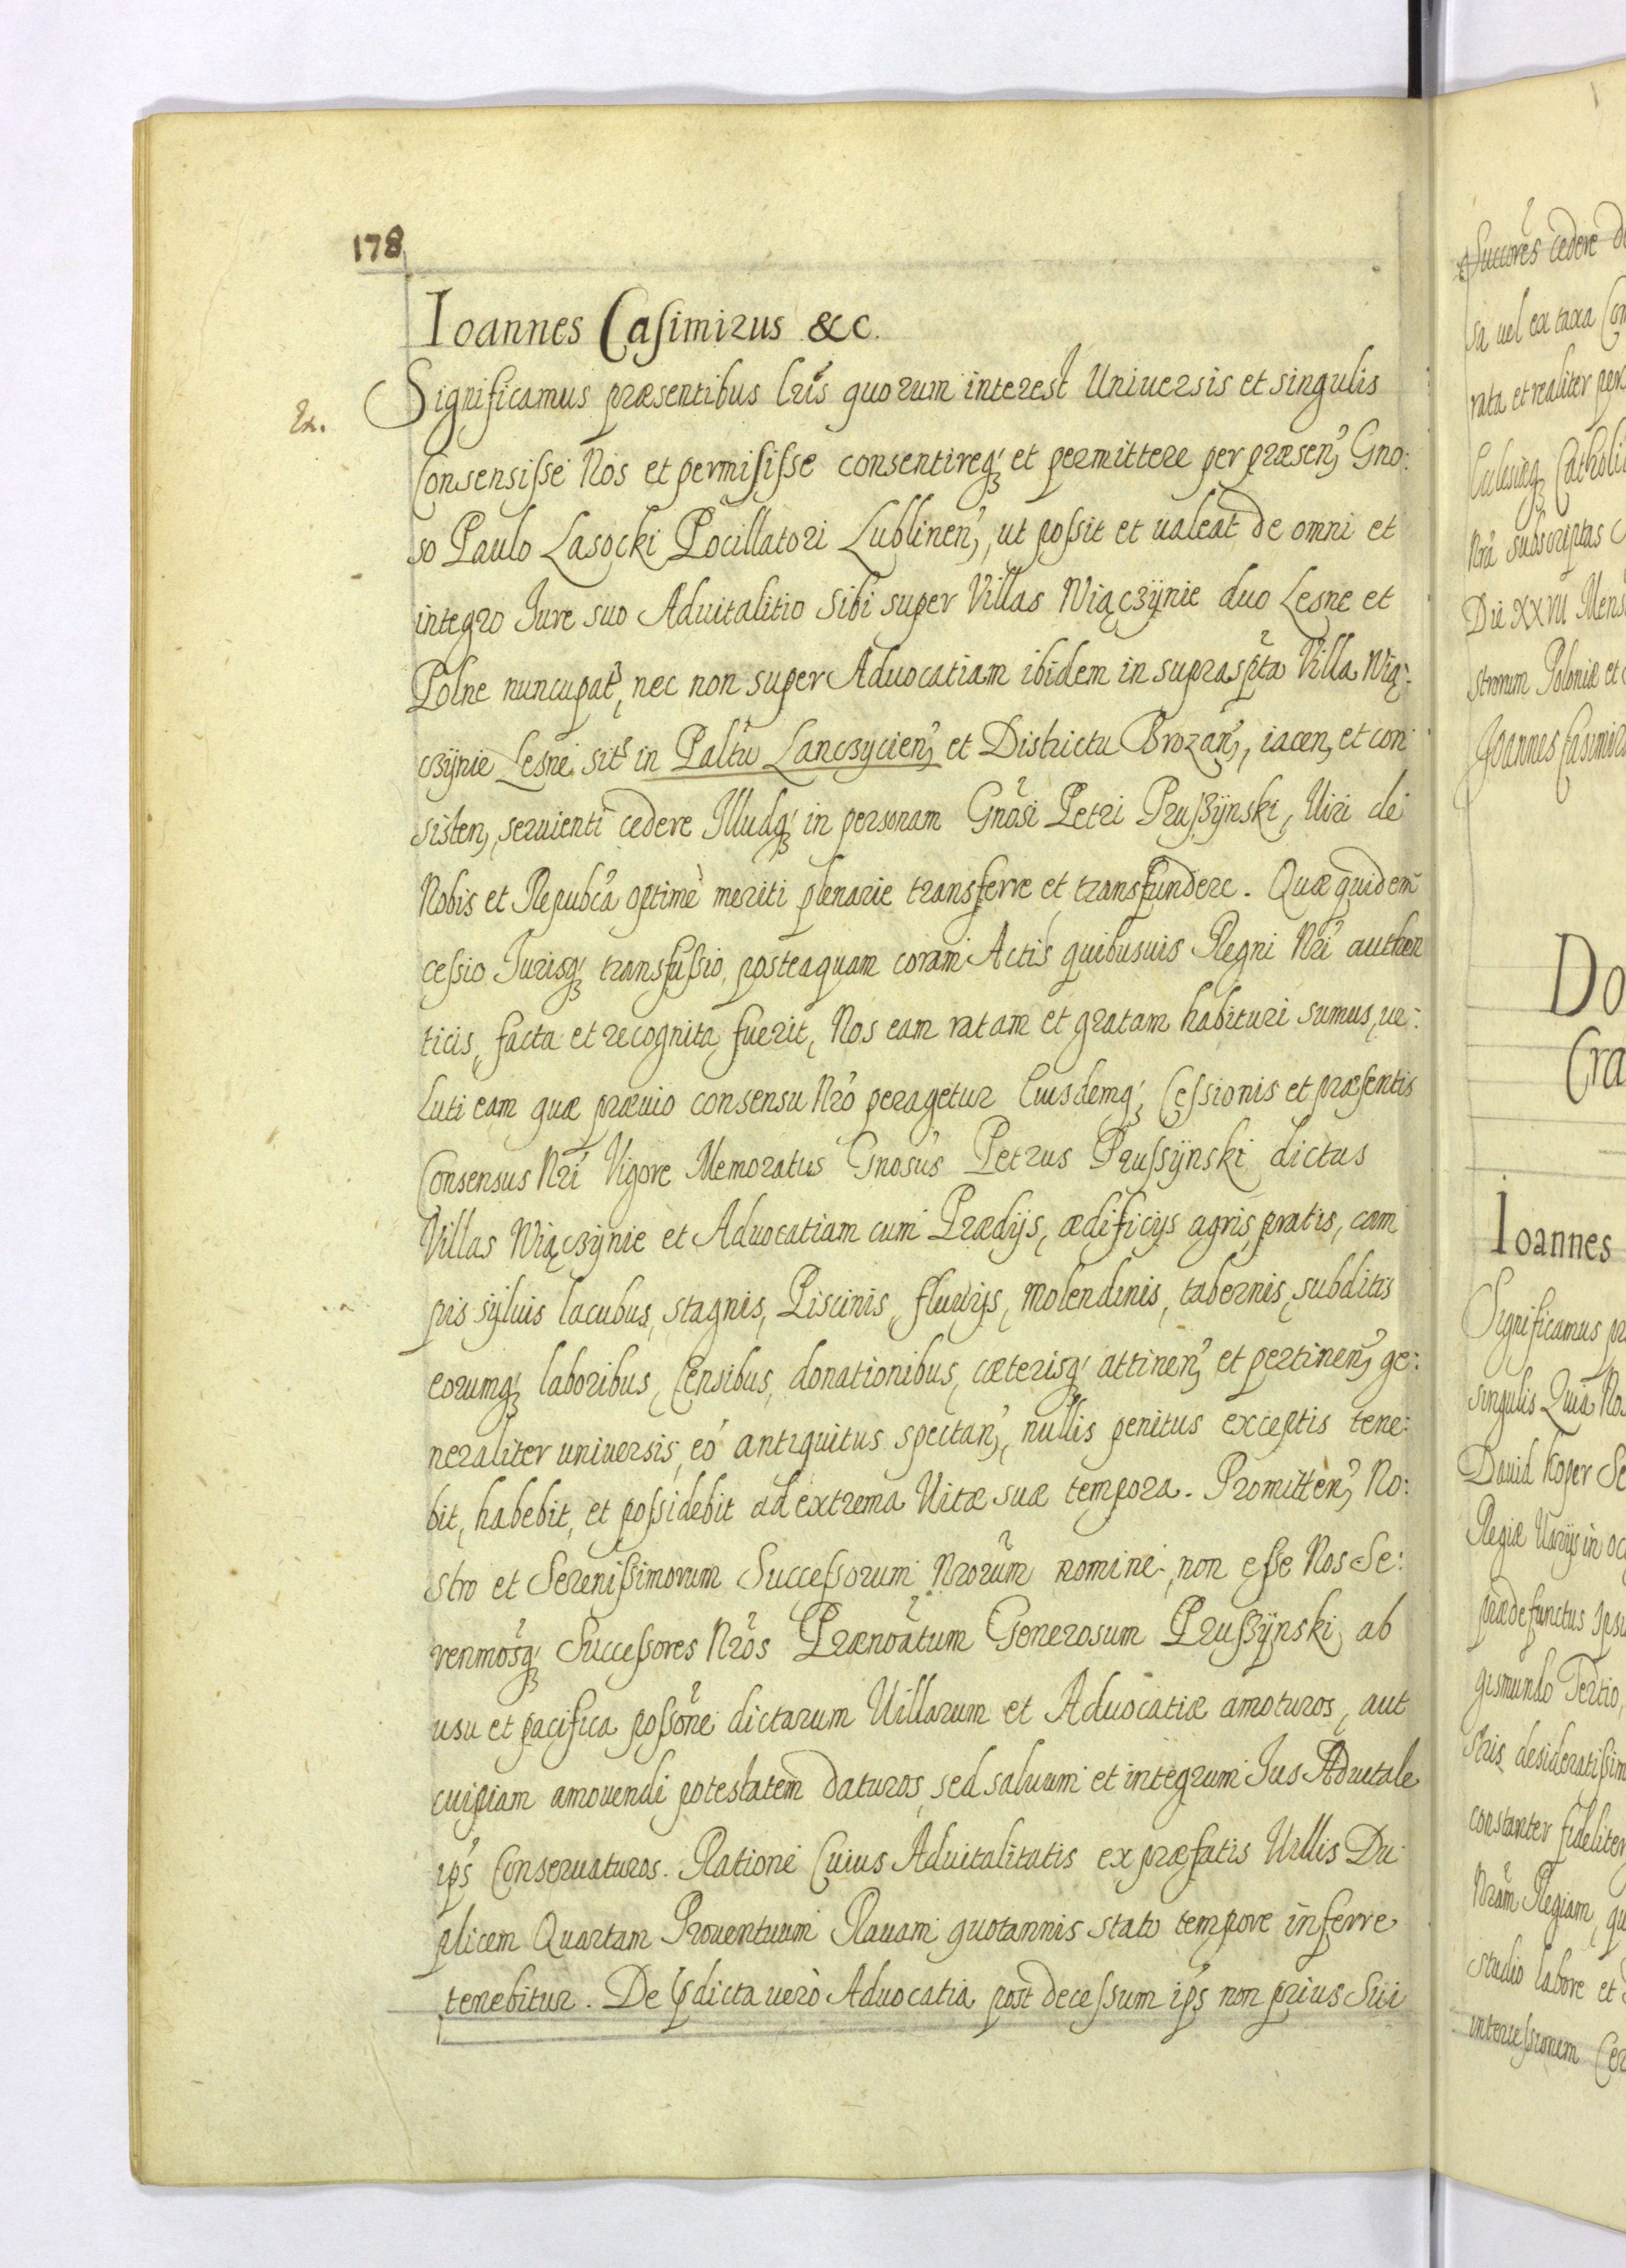 178
Ioannes Casimirus &c.
Significamus præsentibus lris quorum interest Uniuersis et singulis
Ex.
Consensisse Nos et permisisse consentireq; et permittere per præsen, Gno:
so Paulo Lasocki Pocillatori Lublinen, ut possit et ualeat de omni et
integro Iure suo Aduitalitio sibi super Villas Wiączÿnie duo Lesne et
Polne nuncupat, nec non super Aduocatiam ibidem in suprasçta Villa Wią:
czÿnie Lesne sit in Paltu Lanczycien, et Districtu Brozan, iacen, et con
sisten, seruienti cedere Illudq; in personam Gnosi Petri Pruszÿnski, Uiri de
Nobis et Repubca optimè meriti plenarie transferre et transfundere. Quæ quidem
cessio Iurisq; transfussio, posteaquam coram Actis quibusuis Regni Nri authen
ticis, facta et recognita fuerit, Nos eam ratam et gratam habituri sumus, ue:
luti eam quæ præuio consensu Nro peragetur Eiusdemq; Cessionis et præsentis
Consensus Nri Vigore Memoratus Gnosus Petrus Prussÿnski dictas
Villas Wiączÿnie et Aduocatiam cum Prædijs, ædificijs agris, pratis, cam
pis sÿluis lacubus, stagnis, Piscinis, fluuijs, molendinis, tabernis, subditis
eorumq; laboribus, Censibus, donationibus, cæterisq; attinen, et pertinen, ge:
neraliter uniuersis, eó antiquitus spectan, nullis penitus exceptis tene:
bit, habebit, et possidebit ad extrema Uitæ suæ tempora. Promitten, No:
stro et Serenissimorum Successorum Nrorum nomine, non esse Nos Se:
renmosq; Successores Nros Prænoatum Generosum Pruszÿnski, ab
usu et pacifica possone dictarum Uillarum et Aduocatiæ amoturos, aut
cuipiam amouendi potestatem daturos, sed saluum et integrum Ius Aduitale
ips Conseruaturos. Ratione Cuius Aduitalitatis ex præfatis Uillis Du
plicem Quartam Prouentuum Rauam quotannis stato tempore inferre
tenebitur. De pdicta uerò Aduocatia post decessum ips non prius Sui
Succores cedere
sa uel ex taxa
rata et realiter
Nra subscriptas
Die XXVII Mens
strorum Poloniæ et
Joannes Casimir
Do
Cra
Ioannes
Significamus
singulis Quia
Dauid Koper
Regiæ Uarijs in
prædefunctus
gismundo Tertio,
stris desideratissim
constanter fideliter
Nram Regiam,
studio labore et
intercessionem